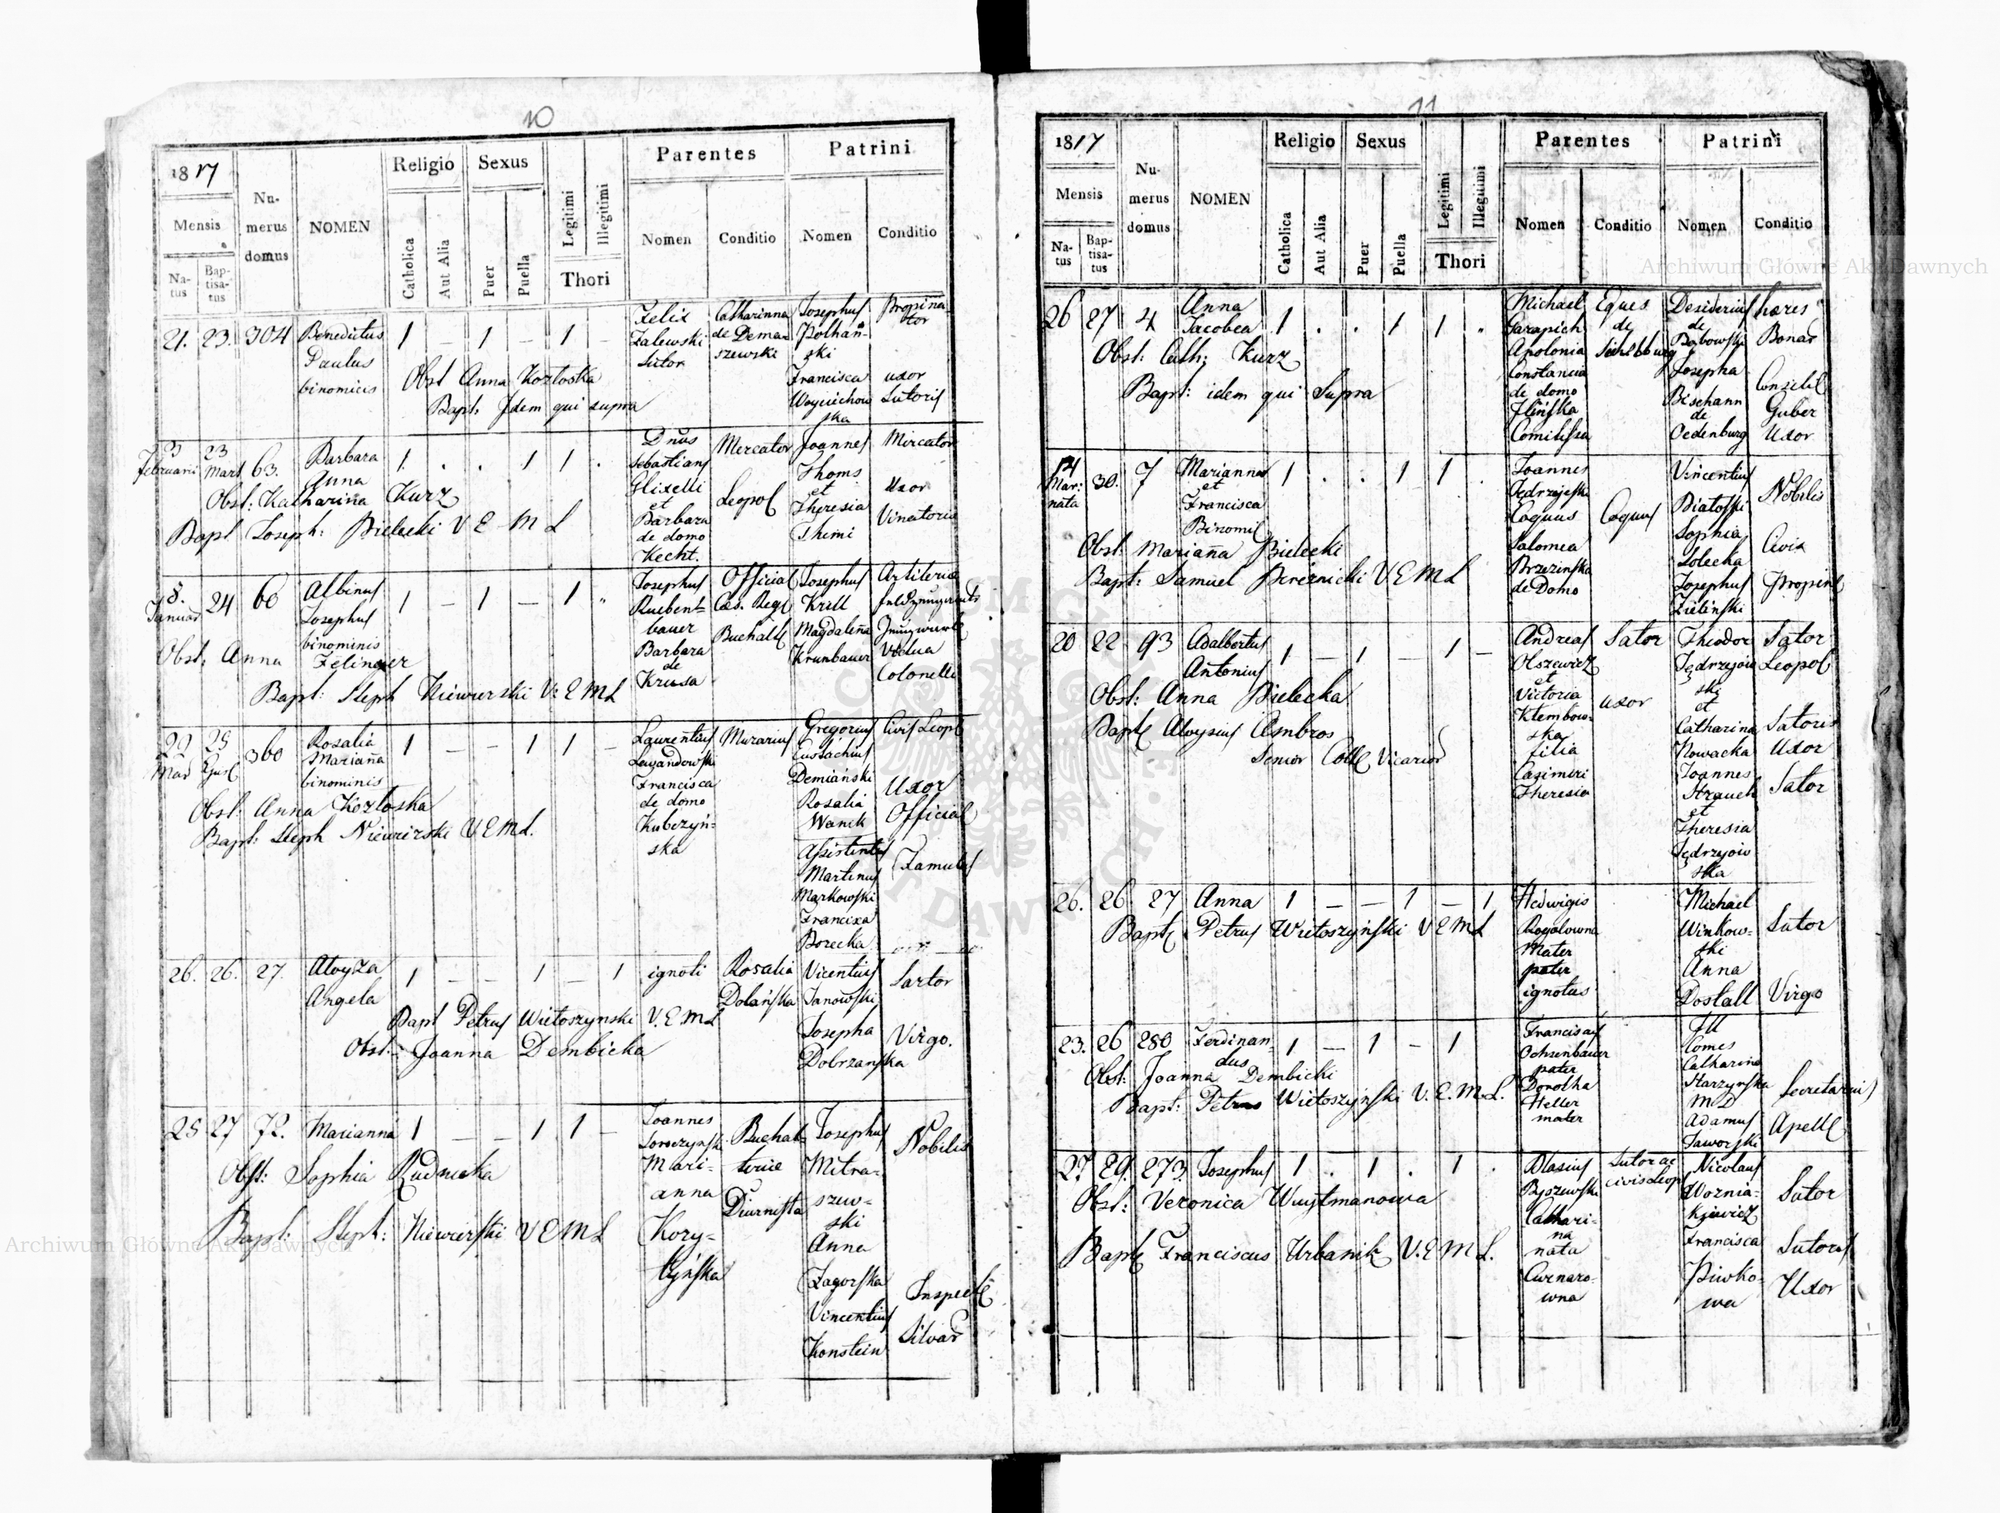 10
1817
Mensis
Natus
Baptisatus
Numerus domus
NOMEN
Religio
Catholica
Aut Alia
Sexus
Puer
Puella
Legitimi
Illegitimi
Thori
Parentes
Nomen
Conditio
Patrini
Nomen
Conditio
21. 23. 304 Benedictus 1 – 1 – 1 –
Paulus
binomicis
Obst Anna Kozłoska
Bapt. Idem qui supra
Felix
Zalewski
Sutor
Catharinna
de Demaszewski
Josephus
Polhański
Francisca
Woyciechowska
Propinator
uxor
Sutoris
23 Februarii
23 Mart
63. Barbara 1 . . 1 1 .
Anna
Obst: Katharina Kurz
Bapt Joseph: Bielecki V E M L
Dnus
Sebastianus
Glixelli
et
Barbara
de domo
Hecht.
Mercator
Leopol
Joannes
Thoms
et
Theresia
Thimi
Mercator
Uxor
8. Januar
24 60 Albinus 1 – 1 – 1 "
Josephus
binominis
Obst. Anna Zelinger
Bapt: Steph Niewierski V. E M L
Josephus
Barbara
de
Krusa
Official
Caes. Reg
Buchalt
Josephus
Krill
Magdalena
Krunbauer
Vidua
Colonelli
360 Rosalia 1 – – 1 1 –
Marianna
binominis
Obst. Anna Kozłoska
Bapt: Steph Niewierski V E M L.
Laurentius
Francisca
de domo
Kubczyńska
Murarius
Civis Leopol
Gregorius
Eustachius
Demiański
Rosalia
Wanik
Assistentes
Martinus
Markowski
Borecka
Uxor
Official
Famulus
26. 26. 27. Aloyza 1 – – 1 – 1
Angela
Bapt Petrus Wietoszynski V. E M L
Obst. Joanna Dembicka
ignoti
Rosalia
Dolańska
Vicentius
Janowski
Josepha
Dobrzańska
Sartor
Virgo.
25 27 72. Marianna 1 – – 1 1 –
Obst: Sophia Rudnicka
Bapt: Steph: Niewierski V E M L
Joannes
Marianna
Diurnista
Josephus
Mitraszewski
Anna
Zagorska
Vincentius
Konstein
Nobilis
Inspect
Silvar
11
1817
Mensis
Natus
Baptisatus
Numerus domus
NOMEN
Religio
Catholica
Aut Alia
Sexus
Puer
Puella
Legitimi
Illegitimi
Thori
Parentes
Nomen
Conditio
Patrini
Nomen
Conditio
26 27 4 Anna 1 . . 1 1 "
Jacobea
Obst: Cath: Kurz
Bapt: idem qui Supra
Michael
Garapich
Apolonia
Constancia
de domo
Ilińska
Comitissa
Eques
de
Desiderius
de
Bobowski
Josepha
Bischann
de
Oedenburg
haeres
Bonar
Consilil
Guber
Uxor
14 Mar: nata
30. 7 Marianna 1 . . 1 1 .
et
Francisca
Binomil
Obst. Marianna Bielecki
Bapt: Samuel Bereznicki V E M L
Joannes
Jędrzejeski
Coquus
Salomea
Brzezinska
de Domo
Coquus
Vincentius
Białoski
Sophia
Solecka
Josephus
Zieliński
Nobilis
Civix
Propinl
20 22 93 Adalbertus 1 – 1 – 1 –
Antonius
Obst: Anna Bielecka
Bapt Aloysius Ambros
Senior Coll Vicarior
Andreas
Olszewicz
et
Victoria
Klembowska
filia
Casimiri
Theresia
Sator
uxor
Theodor
Jędrzyowski
et
Catharina
Nowacka
Joannes
Strauch
et
Theresia
Jędrzyowska
Sator
Leopol
Satoris
Uxor
Sator
26. 26 27 Anna 1 – – 1 – 1
Bapt Petrus Wietoszyński V E M L
Hedwigis
Rogalowna
Mater
pater
ignotus
Michael
Winkowski
Anna
Dostall
Sator
Virgo
23. 26 280 Ferdinandus 1 – 1 – 1
Obst: Joanna Dembicki
Bapt: Petrus Wietoszyński V. E. M. L.
Franciscus
Ochsenbauer
pater
Dorotha
Heller
mater
Ill
Comes
Catharina
Starzyńska
M D
Adamus
Jaworski
Secretarius
Apell
27 29. 273. Josephus 1 . 1 . 1 .
Obst: Veronica Wuytmanowa
Bapt Franciscus Urbanik V. E M L.
Blasius
Byszewski
Catharina
nata
Cwenarowna
Sutor ac
civis Leopol
Nicolaus
Wozniakiewicz
Francisca
Piwkowa
Sutor
Sutoris
Uxor
Archiwum Główne Akt Dawnych
Archiwum Główne Akt Dawnych